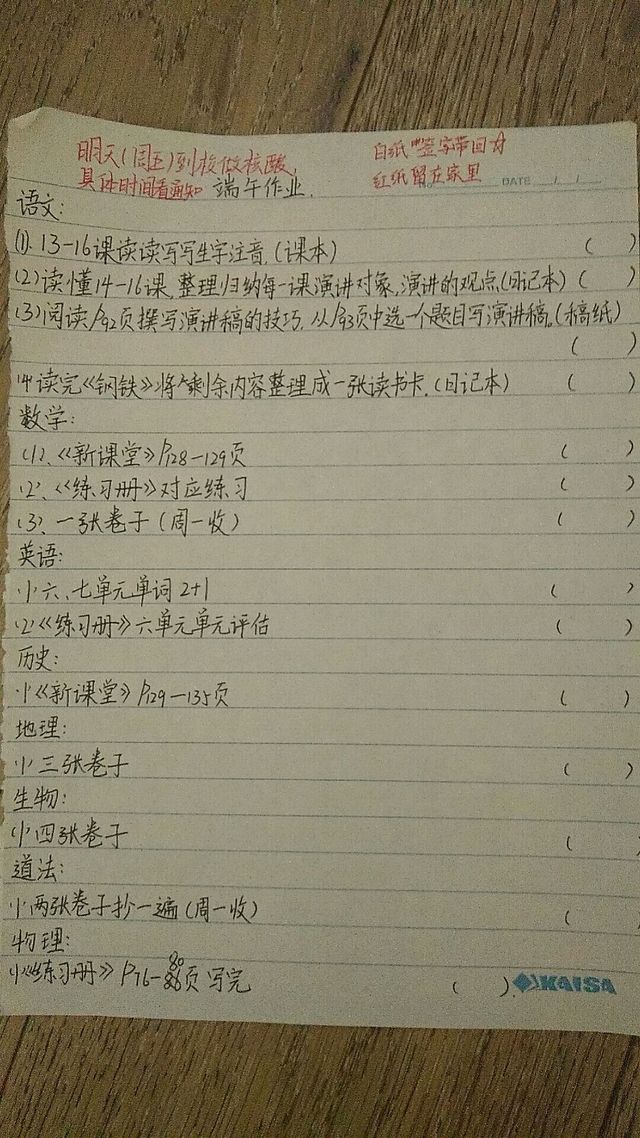 明天(周五)到校做核酸,
具体时间看通知 端午作业.
白纸签字带回
红纸留在家里
DATE
语文:
(1). 13-16课读读写写生字注音. (课本) ( )
(2) 读懂14-16课, 整理归纳每一课演讲对象, 演讲的观点(日记本) ( )
(3) 阅读P92页撰写演讲稿的技巧, 从P93页中选一个题目写演讲稿。(稿纸)
( )
(4) 读完《钢铁》将剩余内容整理成一张读书卡. (日记本) ( )
数学:
(1)、《新课堂》P128-129页 ( )
(2)、《练习册》对应练习 ( )
(3)、一张卷子 (周一收) ( )
英语:
(1) 六、七单元单词 2+1 ( )
(2)《练习册》六单元单元评估 ( )
历史:
(1)《新课堂》P129-135页 ( )
地理:
(1) 三张卷子 ( )
生物:
(1) 四张卷子 (
道法:
(1) 两张卷子抄一遍 (周一收) (
物理:
(1)《练习册》P76-80页 写完 ( ).
KAISA